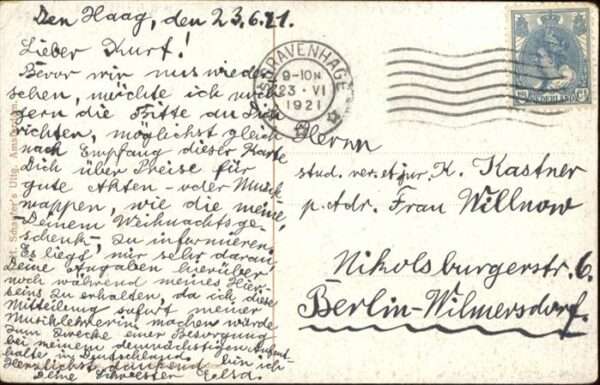 Den Haag, den 23.6.21.
Lieber Kurt!
Bevor wir uns wieder-
sehen, möchte ich noch
gern die Bitte an Dich
richten, möglichst gleich
nach Empfang dieser Karte
Dich über Preise für
gute Akten- oder Musik-
mappen, wie die meine,
Deinem Weihnachtsge-
schenk, zu informieren.
Es liegt mir sehr daran,
Deine Angaben hierüber
noch während meines Hier-
seins zu erhalten, da ich diese
Mitteilung sofort meiner
Musiklehrerin machen würde
zum Zwecke einer Besorgung
bei meinem demnächstigen Aufent-
halte in Deutschland. bin ich
Herzlichst dankend
Deine Schwester Elsa.
Schaefer's Uitg. Amsterdam.
'S GRAVENHAGE
9-10N
23 · VI
1921
NEDERLAND
Herrn
stud. rer. et jur. K. Kastner
p. Adr. Frau Willnow
Nikolsburgerstr. 6.
Berlin-Wilmersdorf.